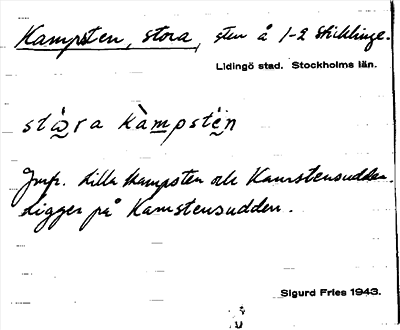 Kampsten, stora, sten å 1-2 Skiklinge.
Lidingö stad. Stockholms län.
stòra kàmpstén
Jmfr. Lilla Kampsten och Kamstensudden.
Ligger på Kamstensudden.
Sigurd Fries 1943.